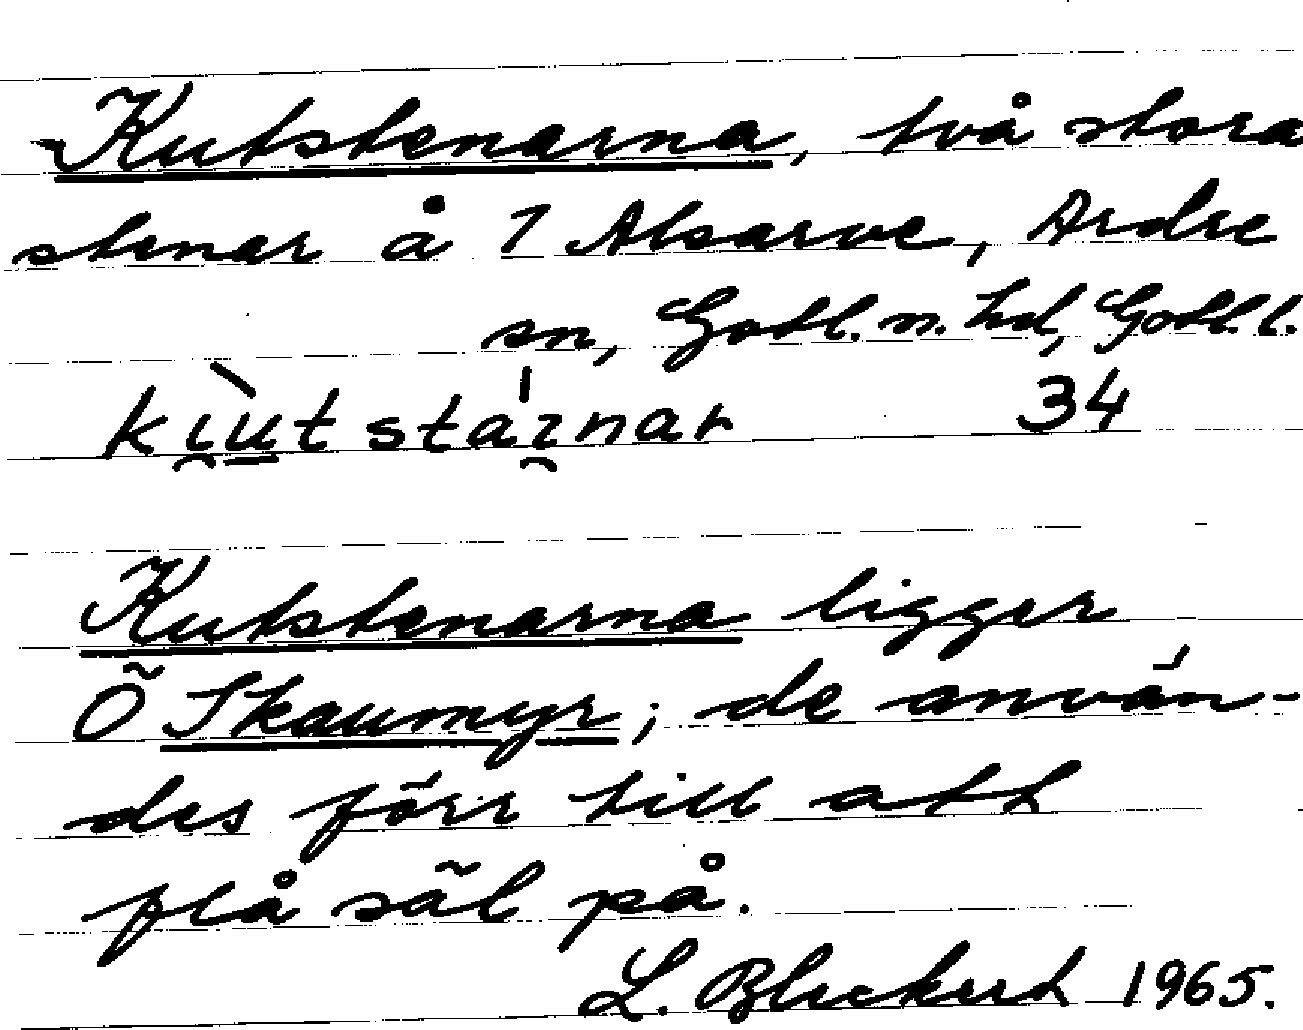 Kutstenarna, två stora
stenar å 1 Alsarve, Ardre
sn, Gotl. n. hd, Gotl. l.
ki̯ùtstai̯ ́nar 34
Kutstenarna ligger
Ö Skaumyr; de använ-
des förr till att
flå säl på.
L. Bleckert 1965.